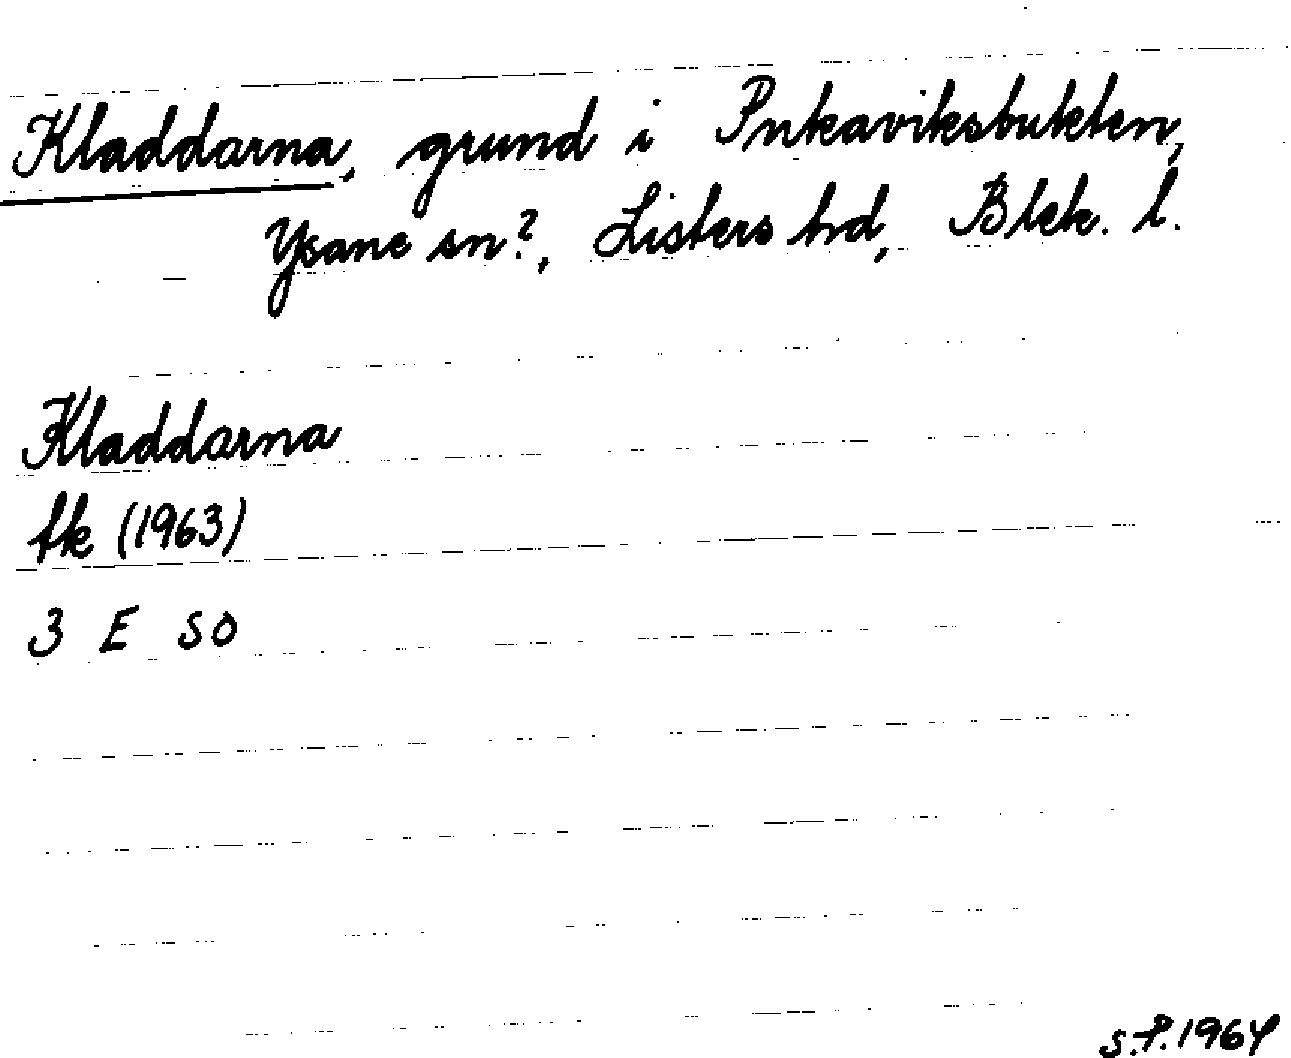 Kladdarna, grund i Pukaviksbukten,
Ysane sn?, Listers hd, Blek. l.
Kladdarna
fk (1963)
3 E SO
S.P. 1964